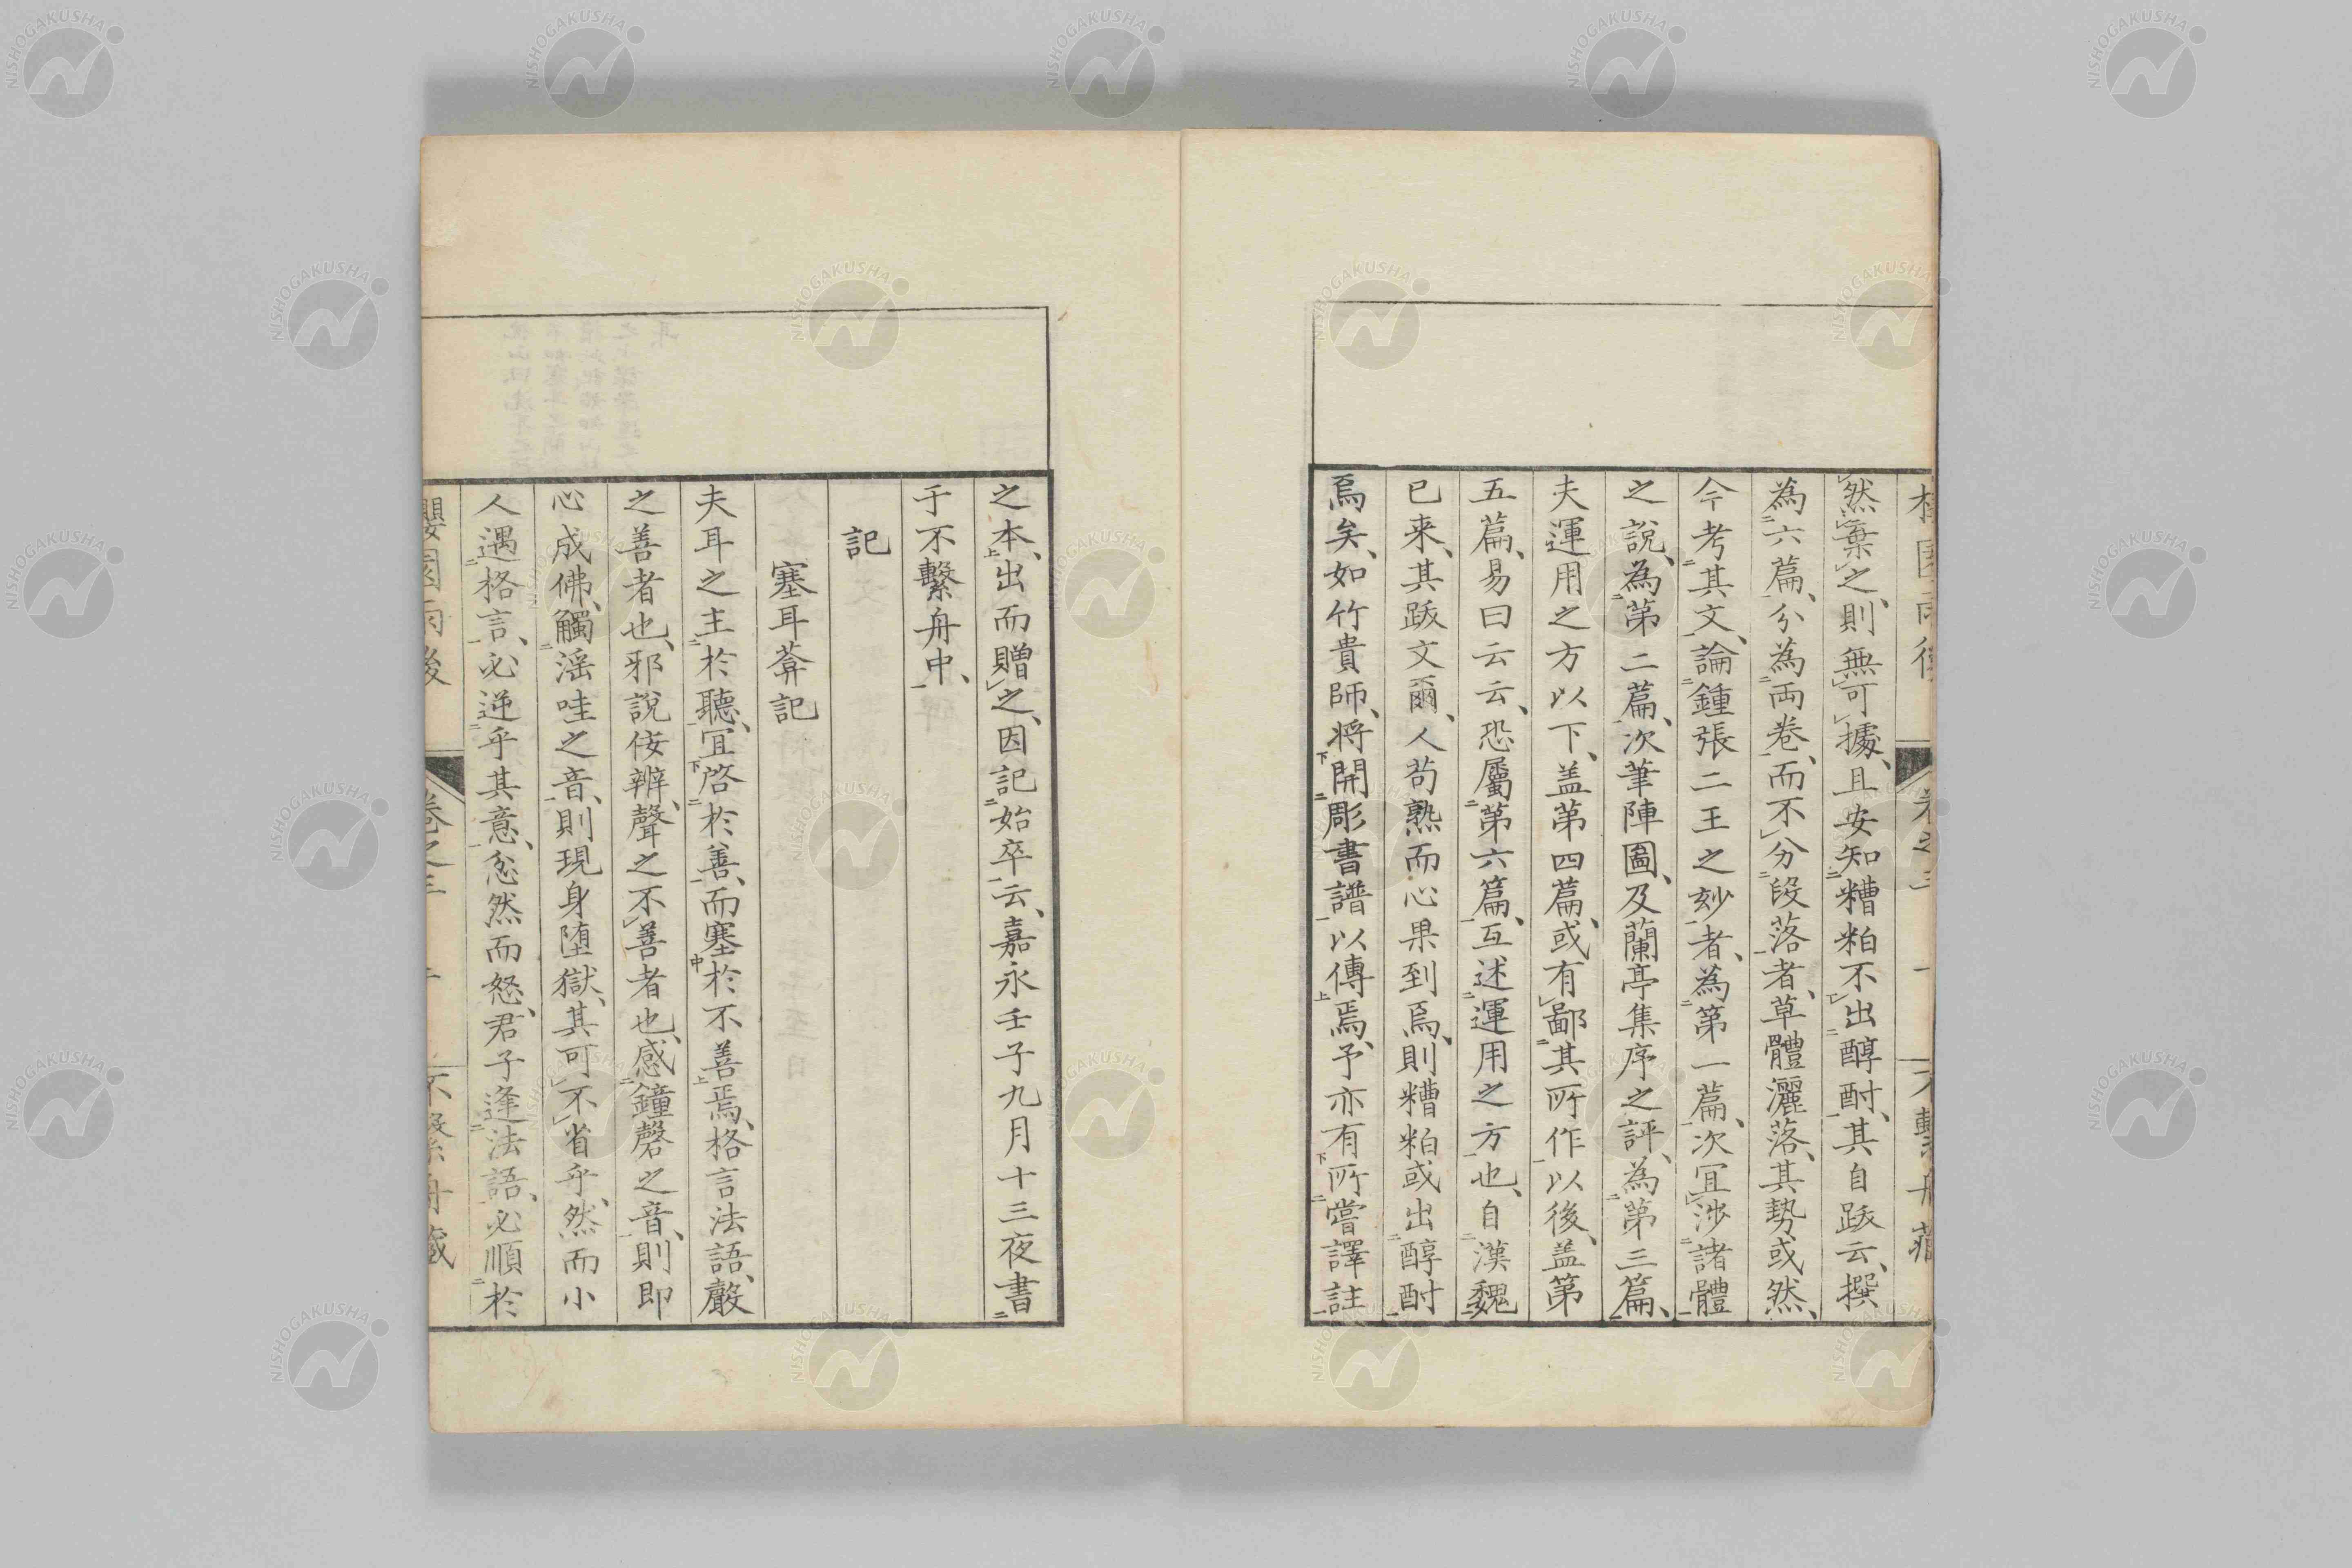 然棄之、則無可據、且安知糟粕不出醇酎、其自跋云、撰
為六篇、分為両卷、而不分段落者、草體灑落、其勢或然、
今考其文、論鍾張二王之妙者、為第一篇、次冝渉諸體
之說、為第二篇、次筆陣圖、及蘭亭集序之評、為第三篇、
夫運用之方以下、盖第四篇、或有鄙其所作以後、盖第
五篇、易曰云云、恐屬第六篇、互述運用之方也、自漢魏
已来、其跋文爾、人苟熟而心果到焉、則糟粕或出醇酎
焉矣、如竹貴師、将開彫書譜以傳焉、予亦有所嘗譯註
之本、出而贈之、因記始卒云、嘉永壬子九月十三夜書
于不繫舟中、
記
塞耳葊記
夫耳之主於聽、冝啓於善、而塞於不善焉、格言法語、嚴
之善者也、邪說侫辨、聲之不善者也、感鐘磬之音、則即
心成佛、觸滛哇之音、則現身堕獄、其可不省乎、然而小
人遇格言、必逆乎其意、忿然而怒、君子逢法語、必順於
NISHOGAKUSHA